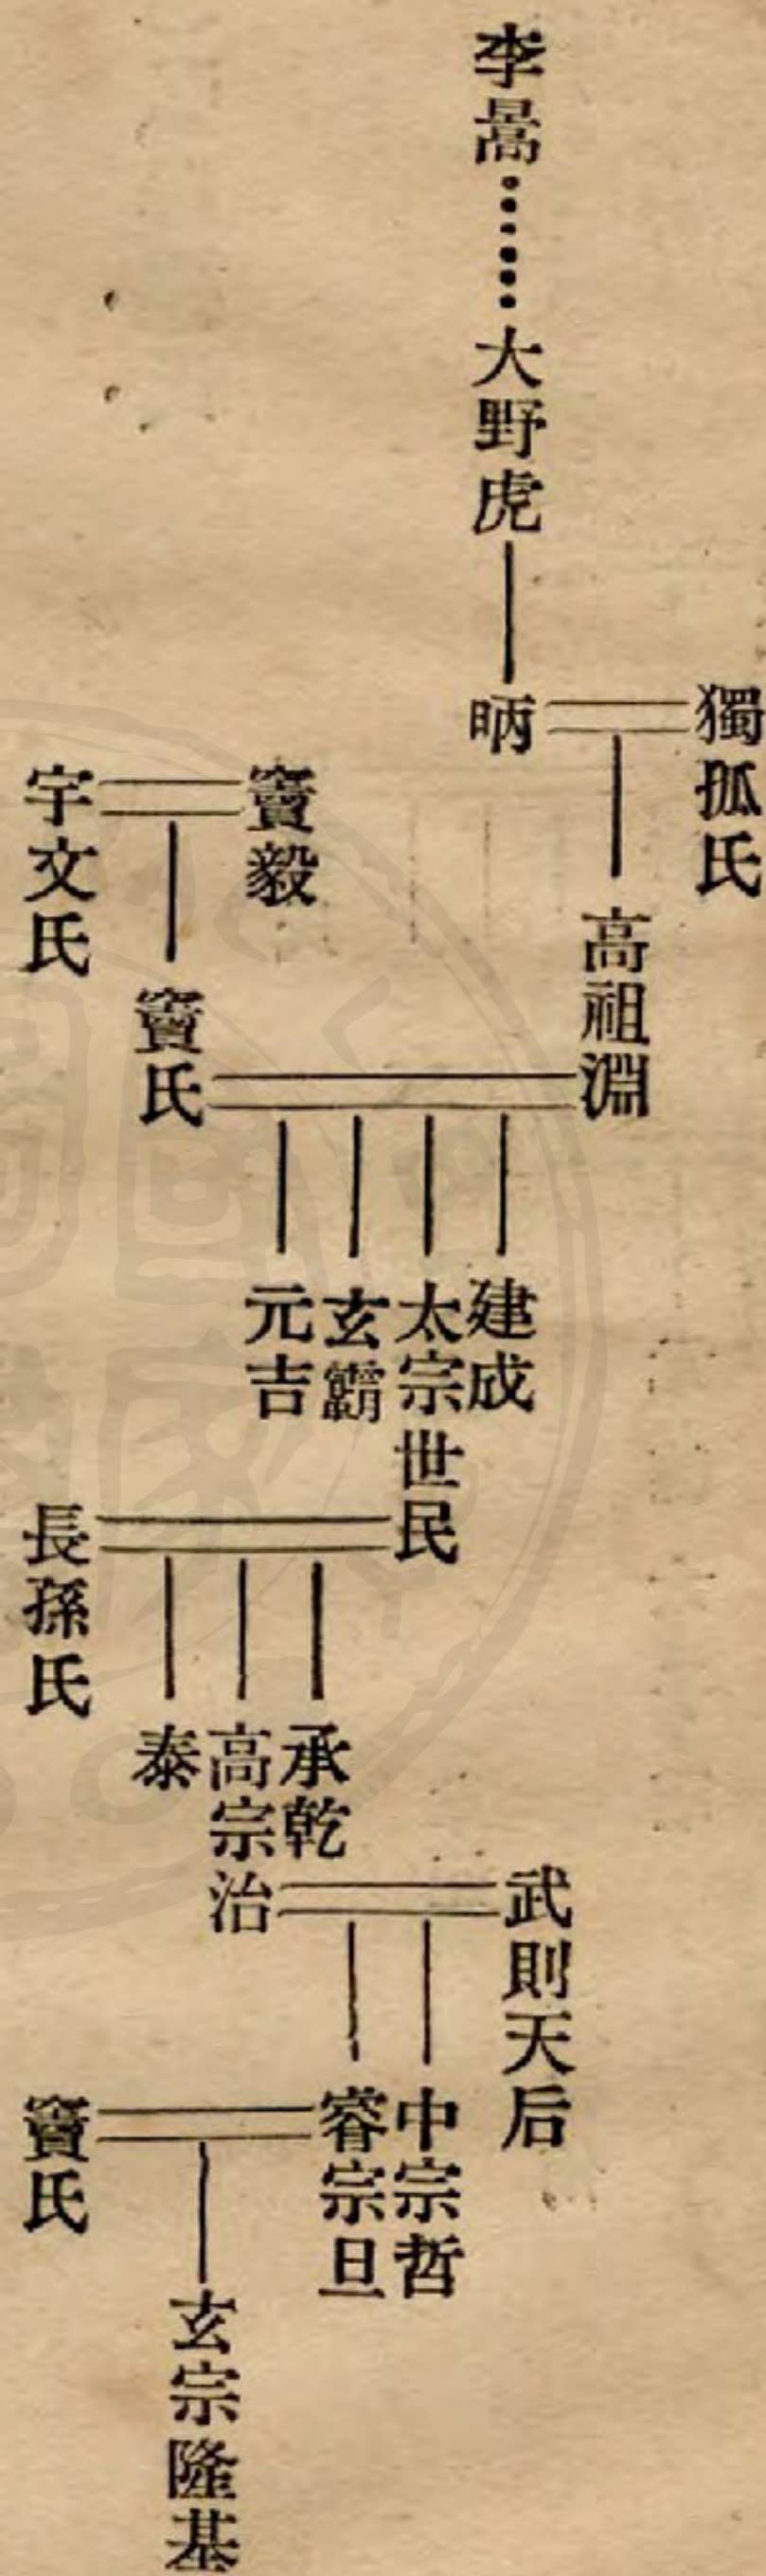 李暠……大野虎
獨孤氏
昞
高祖淵
竇毅
宇文氏
竇氏
建成
太宗世民
玄霸
元吉
長孫氏
承乾
高宗治
泰
武則天后
中宗哲
睿宗旦
竇氏
玄宗隆基